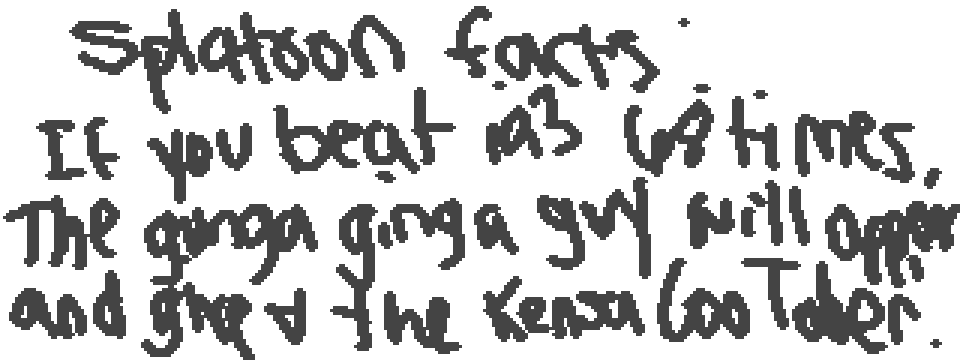 Splatoon facts
If you beat 1a3 68 times,
The gunga ginga guy will apper
and give u the Kensa Coo Tder.